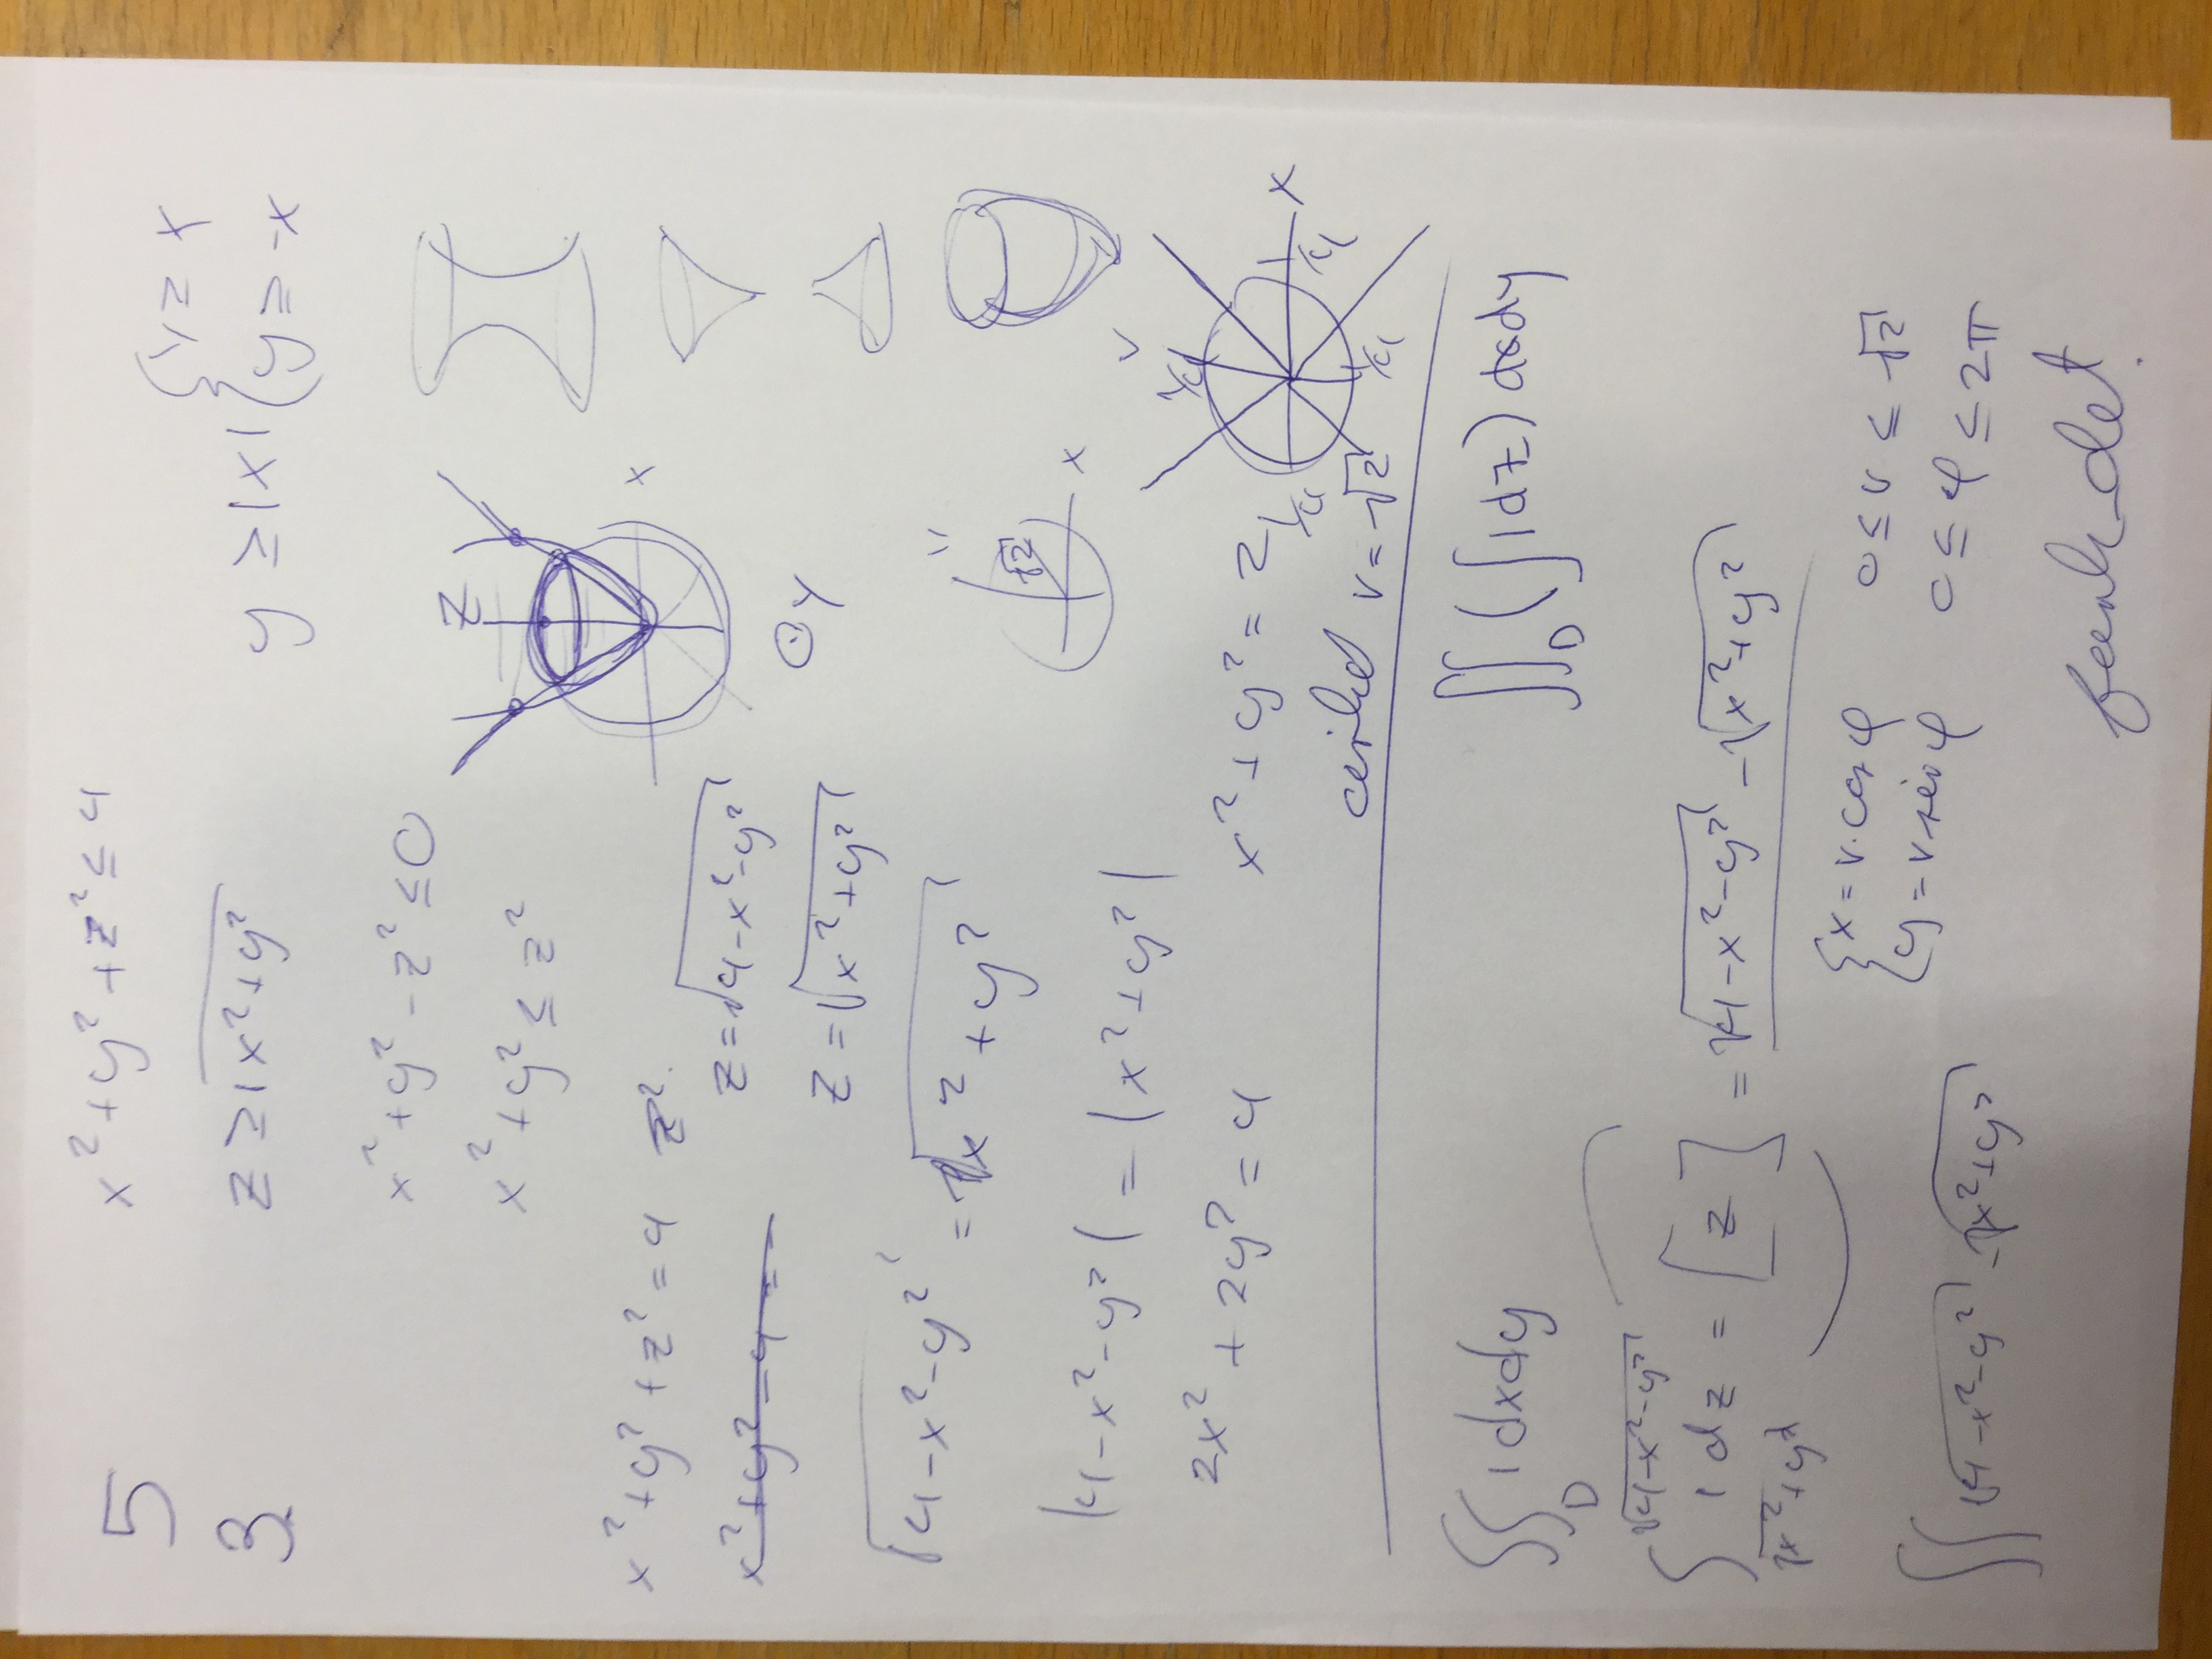 5
x² + y² + z² ≤ 4
3
z ≥ √x² + y²
y ≥ |x| { y ≥ x
y ≥ -x
x² + y² - z² ≤ 0
x² + y² ≤ z²
z
x
⊙ y
x² + y² + z² = 4 z².
x² + y² - 4 = -
z = √4 - x² - y²
z = √x² + y²
√4 - x² - y² = √x² + y²
√2
x
|4 - x² - y²| = |x² + y²|
2x² + 2y² = 4
x² + y² = 2
1/4
1/4
1/4
1/4
x
cirkel r = √2
∬D 1 dxdy
∬D (∫1dz) dxdy
∫ √x² + y² √4 - x² - y² 1 dz = [z] = √4 - x² - y² - √x² + y²
{ x = r · cos φ
y = r sin φ
0 ≤ r ≤ √2
0 ≤ φ ≤ 2π
∬ √4 - x² - y² - √x² + y²
funk_det.